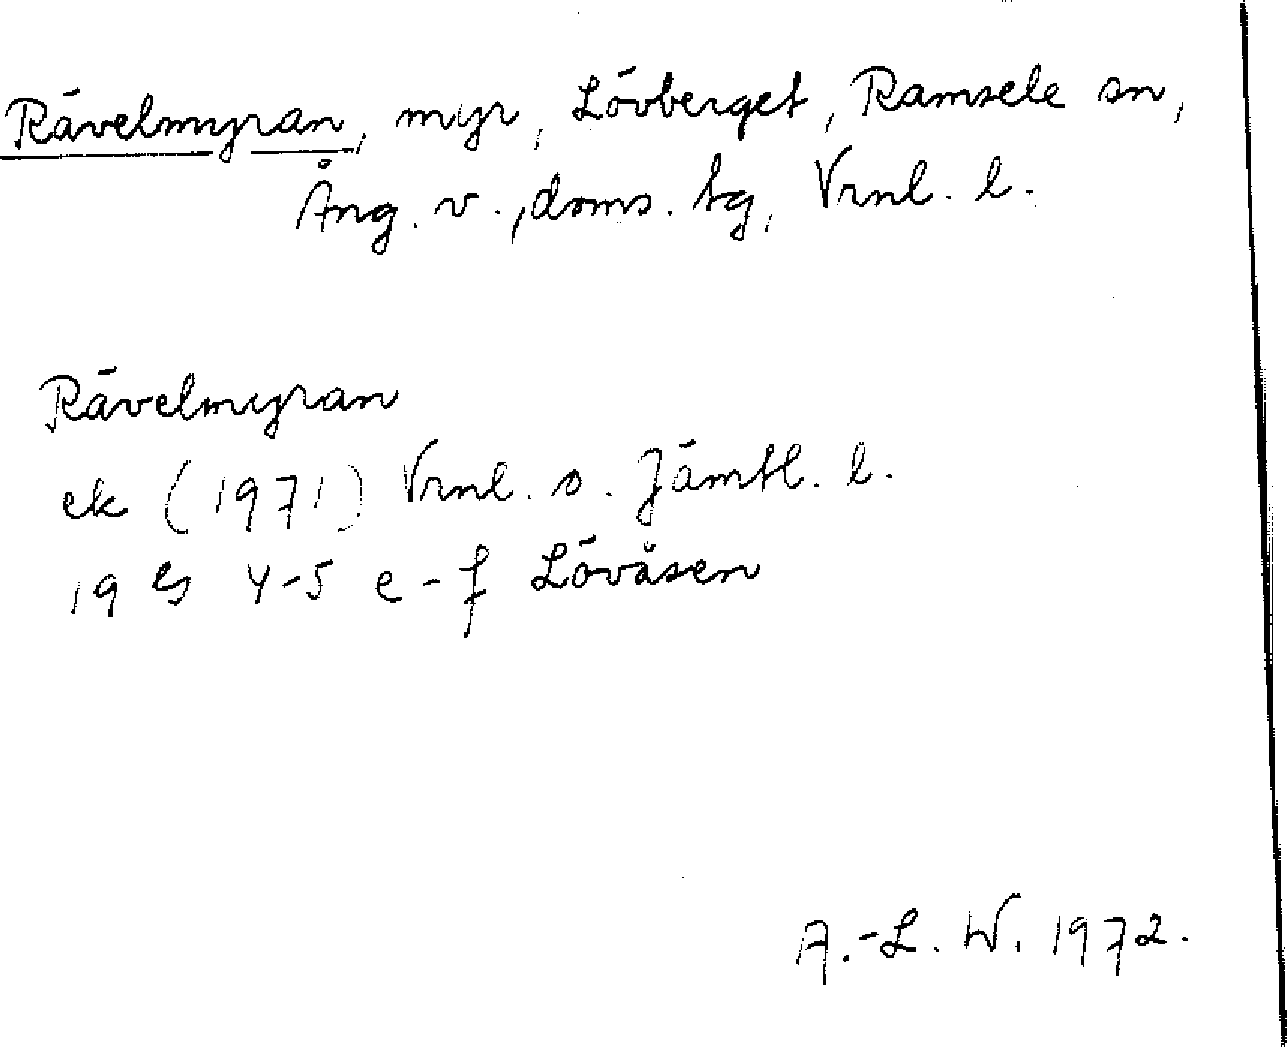 Rävelmyran, myr, Lövberget, Ramsele sn,
Ång. v., doms. tg, Vrnl. l.
Rävelmyran
ek (1971) Vrnl. o. Jämtl. l.
19 G 4-5 e-f Lövåsen
A.-L. W. 1972.